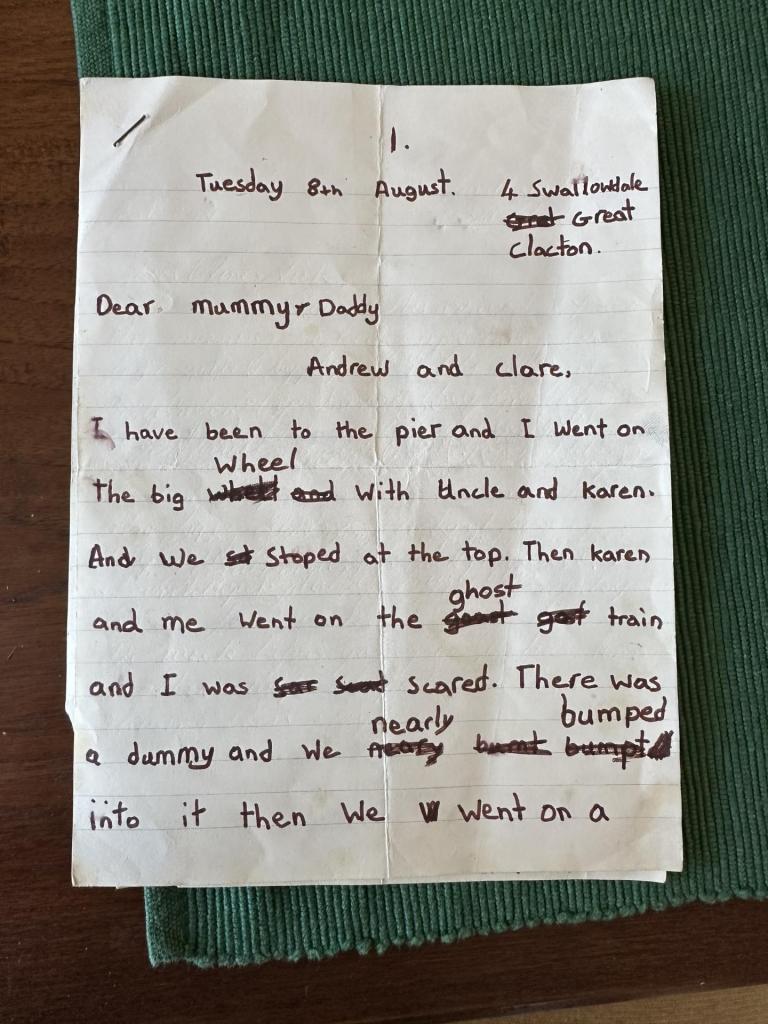 1.
Tuesday 8th August. 4 Swallowdale
Great
Clacton.
Dear mummy & Daddy
Andrew and Clare,
I have been to the pier and I went on
wheel
The big with Uncle and Karen.
And we st stoped at the top. Then Karen
ghost
and me went on the goast gost train
and I was scared. There was
nearly bumped
a dummy and we nearfy bumt bumpt
into it then we w went on a